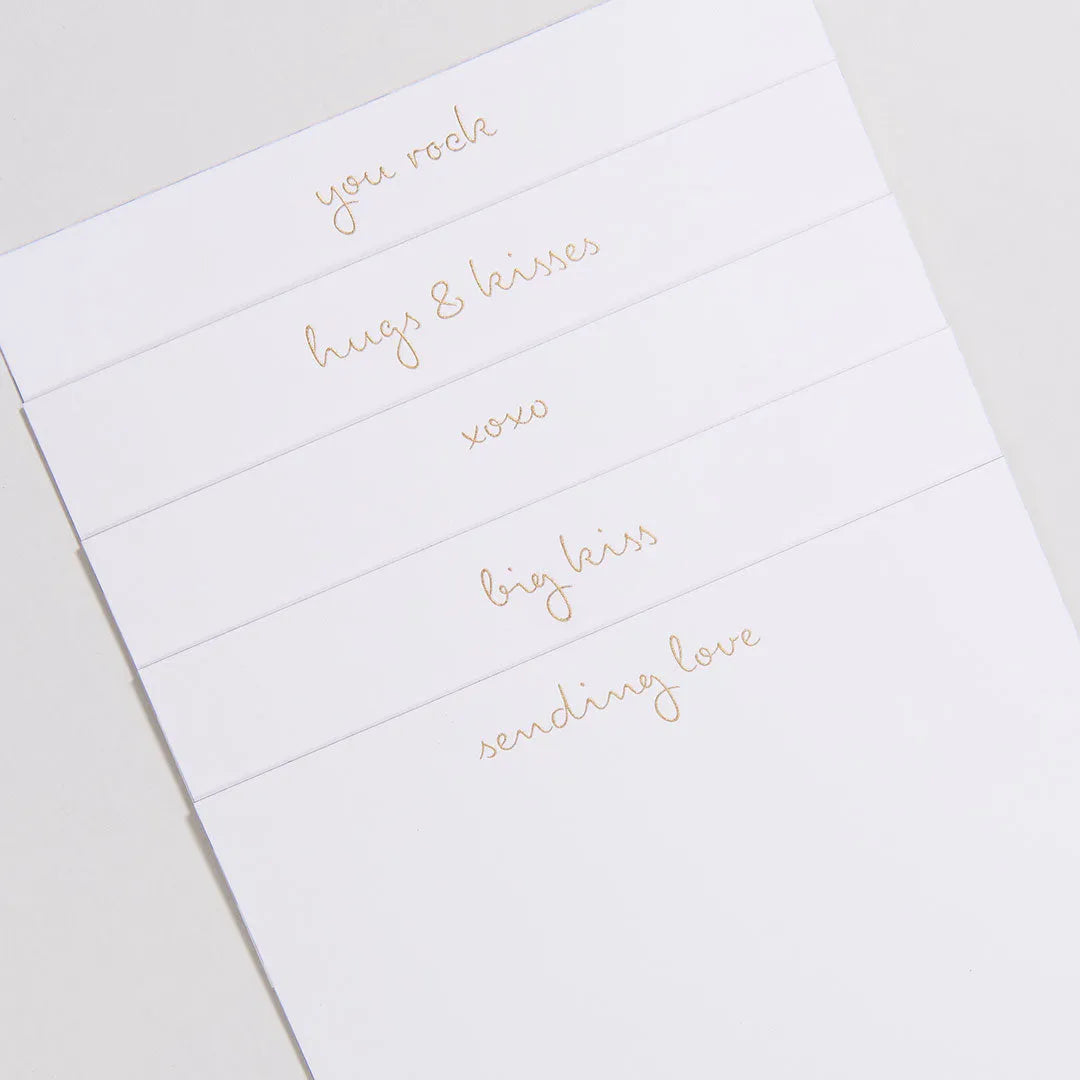 you rock
hugs & kisses
xoxo
big kiss
sending love